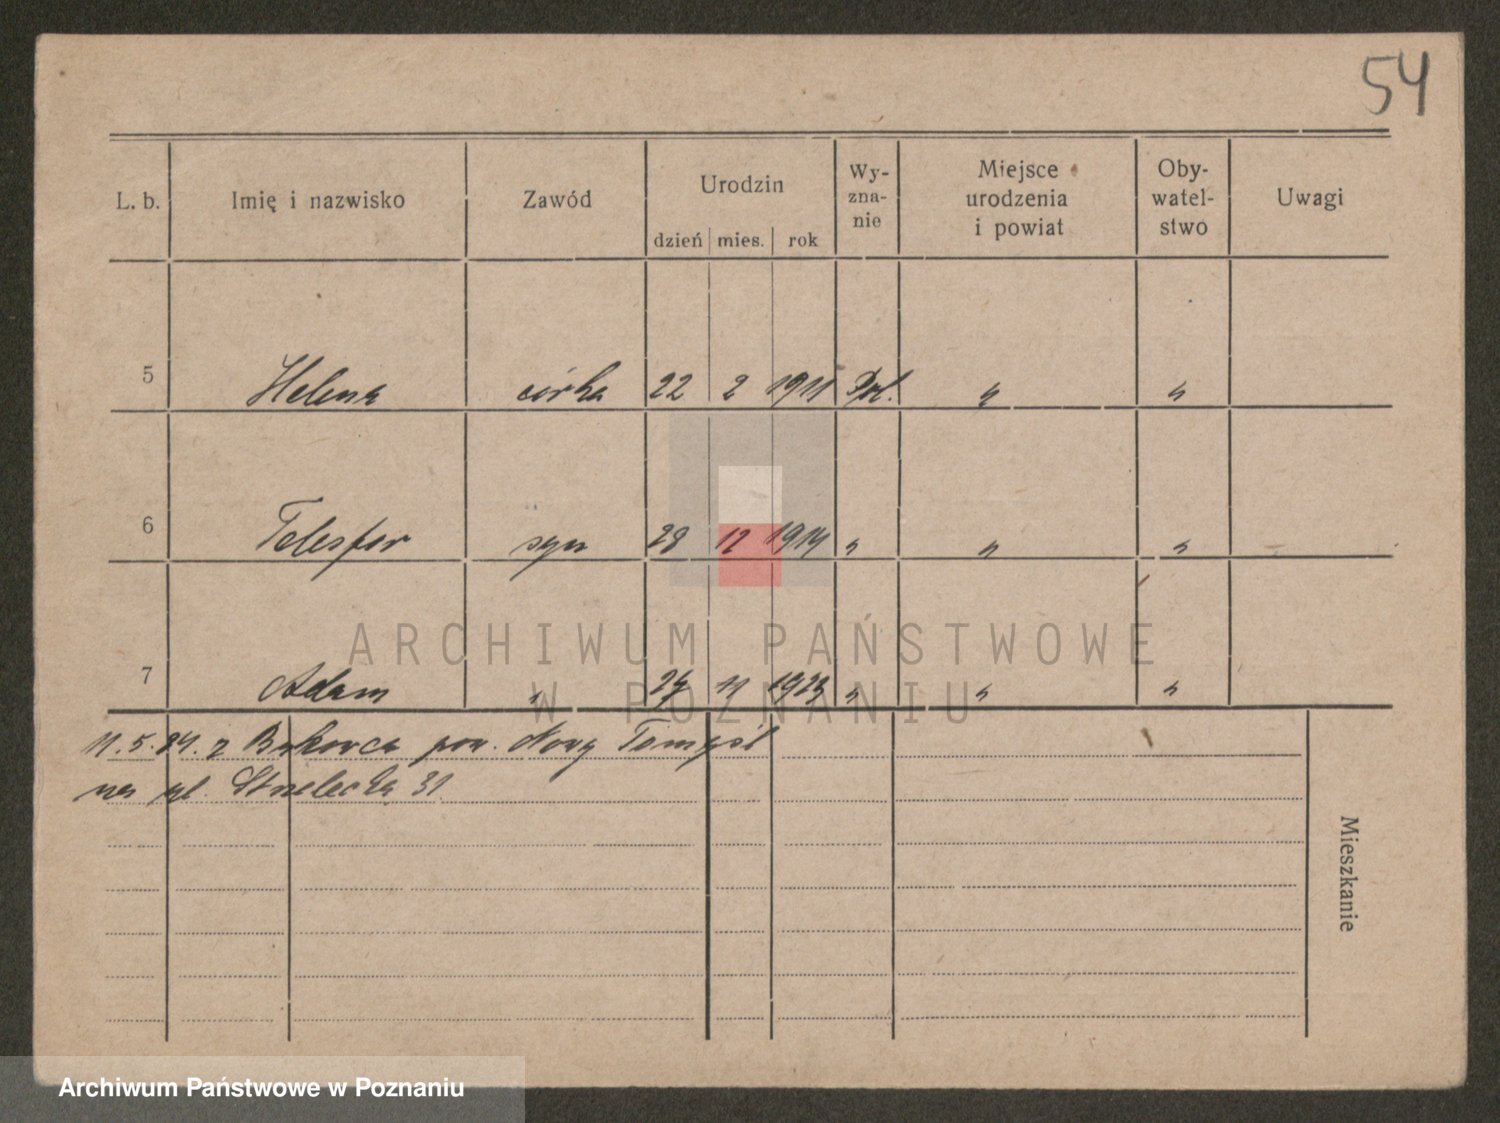 54
L. b. Imię i nazwisko Zawód Urodzin Wy-zna-nie Miejsce urodzenia i powiat Oby-watel-stwo Uwagi
dzień mies. rok
5 Helena córka 22 2 1911 " "
6 Telesfor syn 28 12 1914 " " "
7 Adam " 24 11 1923 " " "
ARCHIWUM PAŃSTWOWE
W POZNANIU
11.5. z pow. Nowy Tomyśl
na ul. Strzelecka 31
Mieszkanie
Archiwum Państwowe w Poznaniu